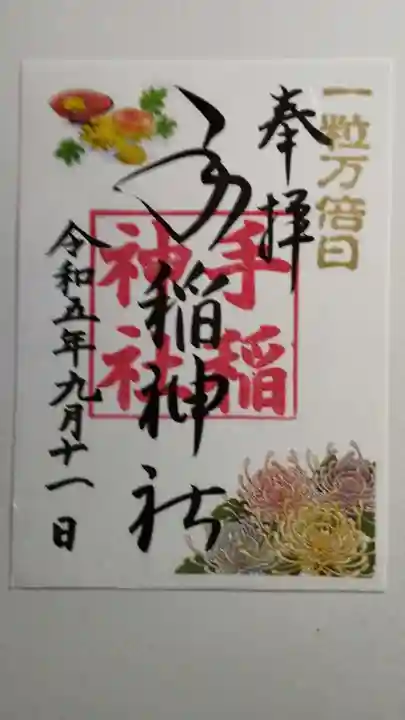 一粒万倍日
奉拝
手稲神社
手稲
神社
令和五年九月十一日